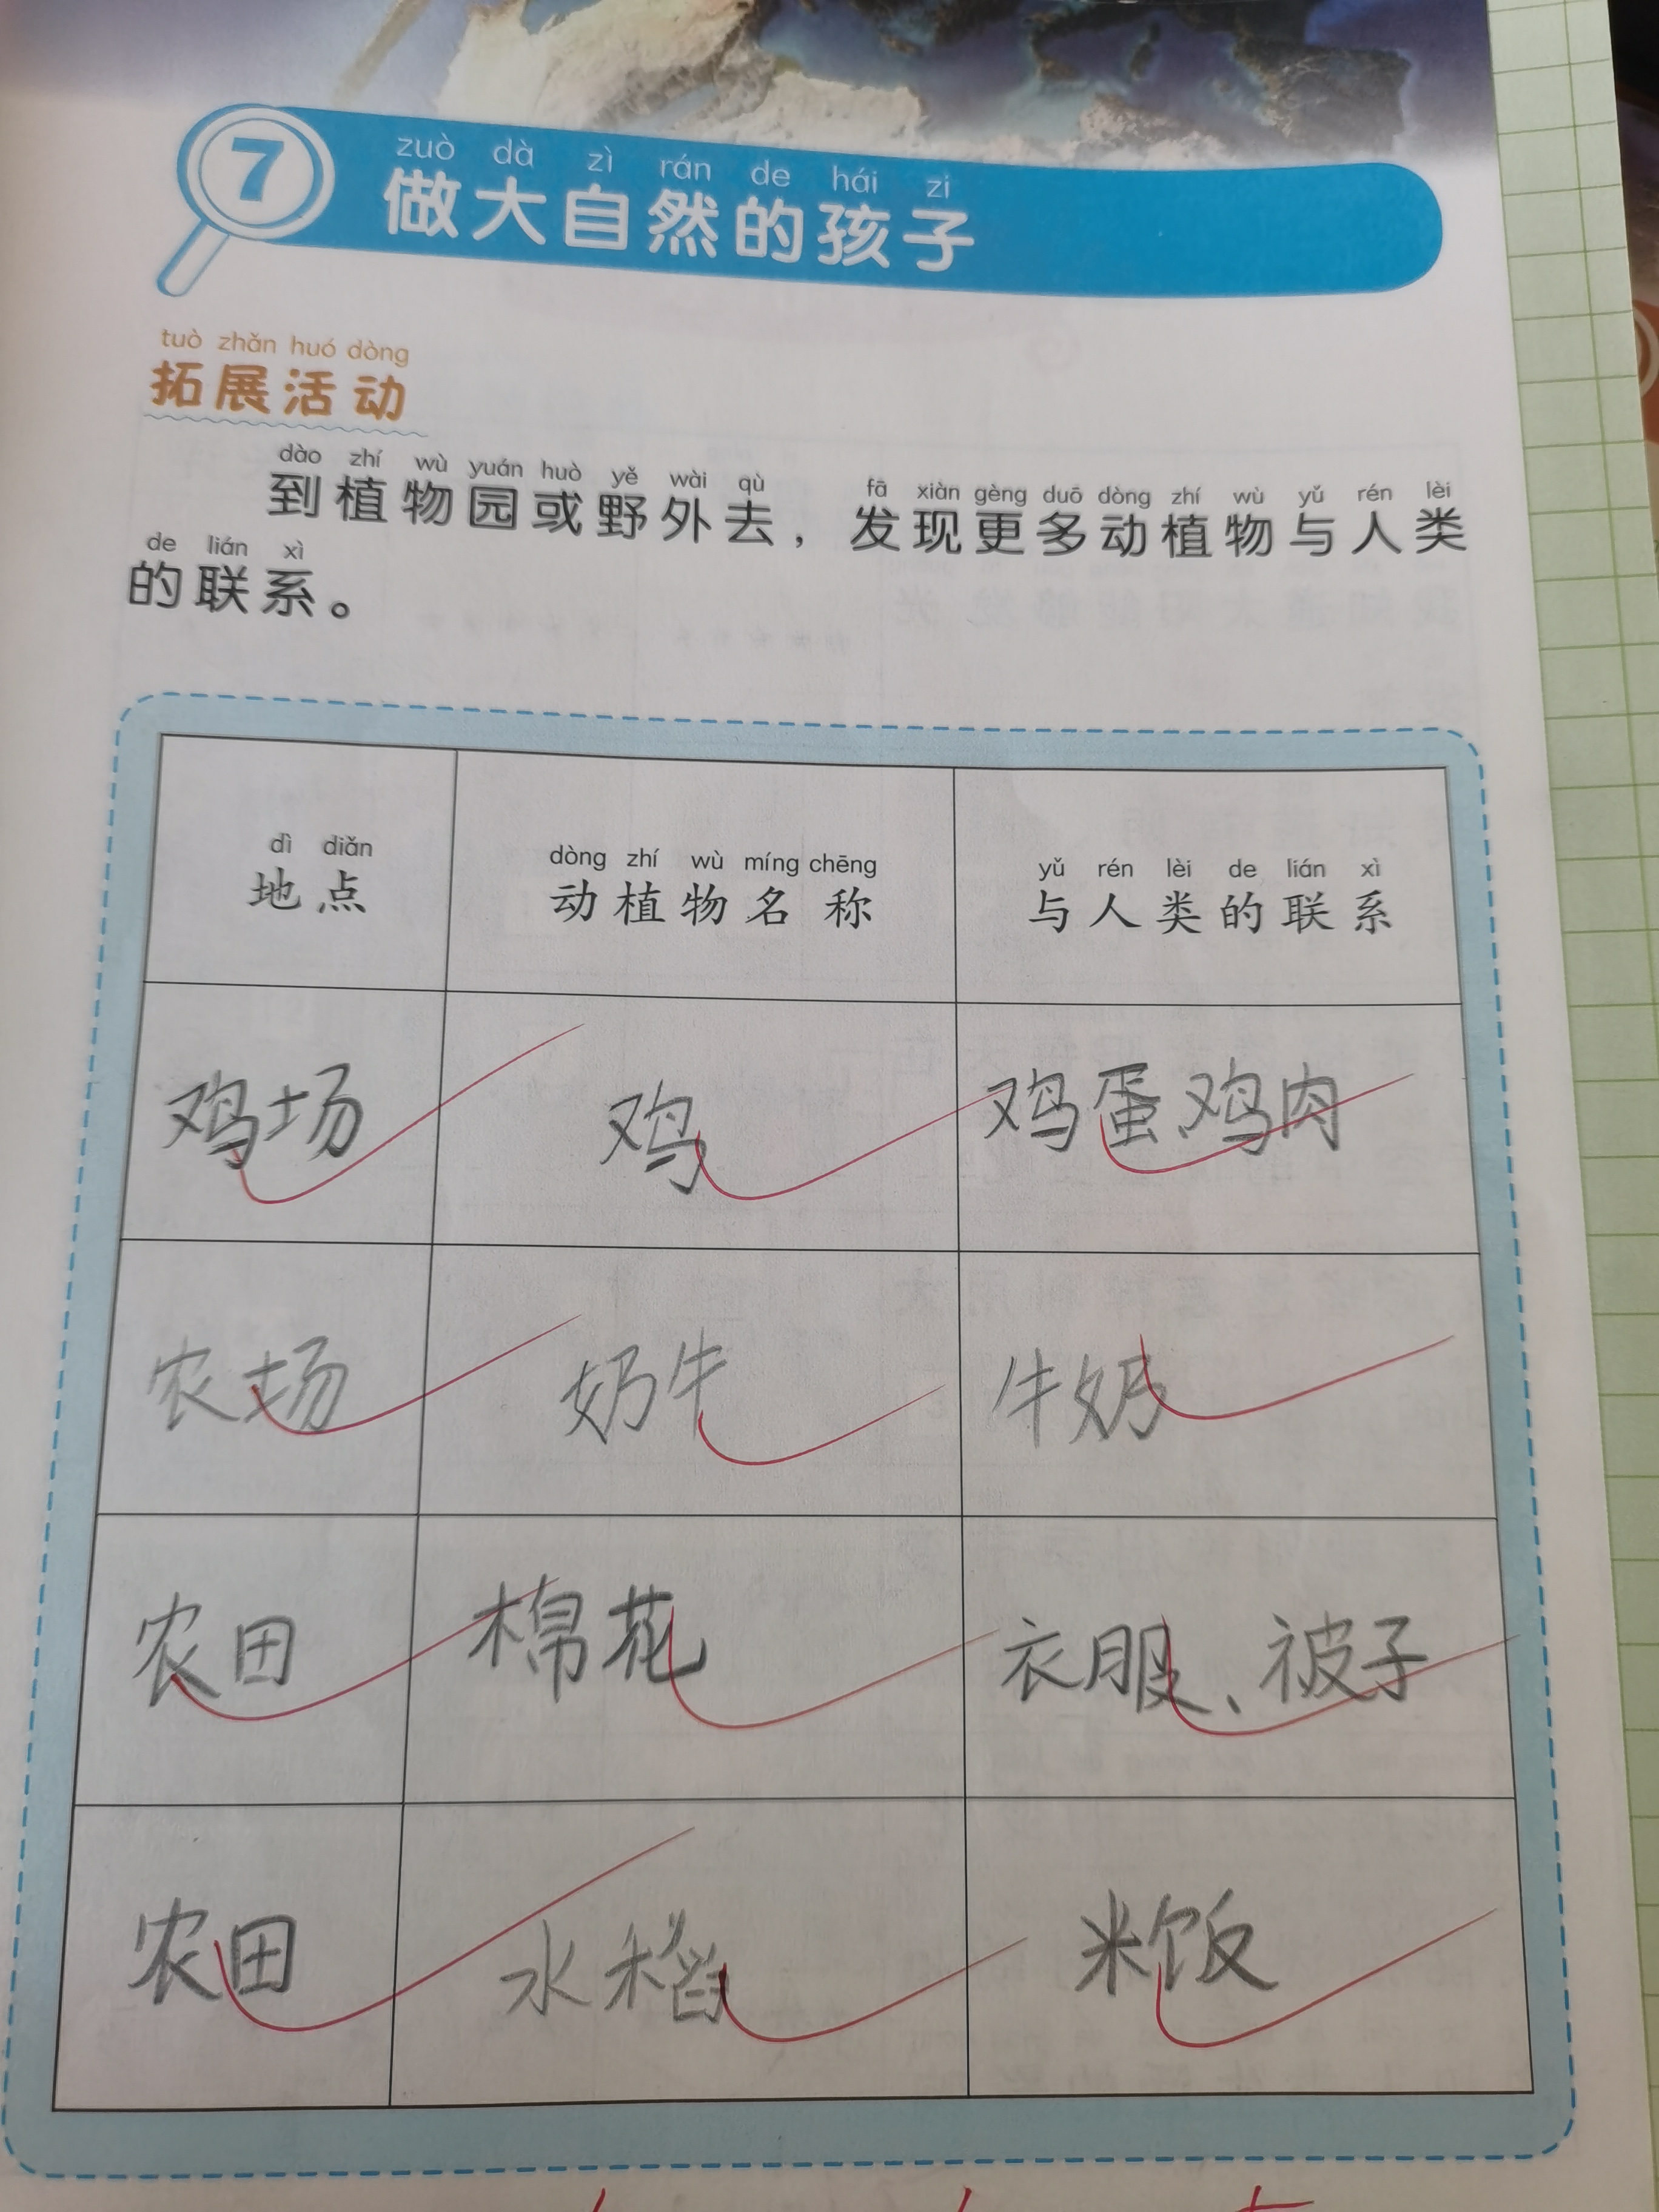 7
zuò dà zì rán de hái zi
做大自然的孩子
tuò zhǎn huó dòng
拓展活动
dào zhí wù yuán huò yě wài qù fā xiàn gèng duō dòng zhí wù yǔ rén lèi
到植物园或野外去，发现更多动植物与人类
de lián xì
的联系。
dì diǎn dòng zhí wù míng chēng yǔ rén lèi de lián xì
地点 动植物名称 与人类的联系
鸡场 鸡 鸡蛋、鸡肉
农场 奶牛 牛奶
农田 棉花 衣服、被子
农田 水稻 米饭